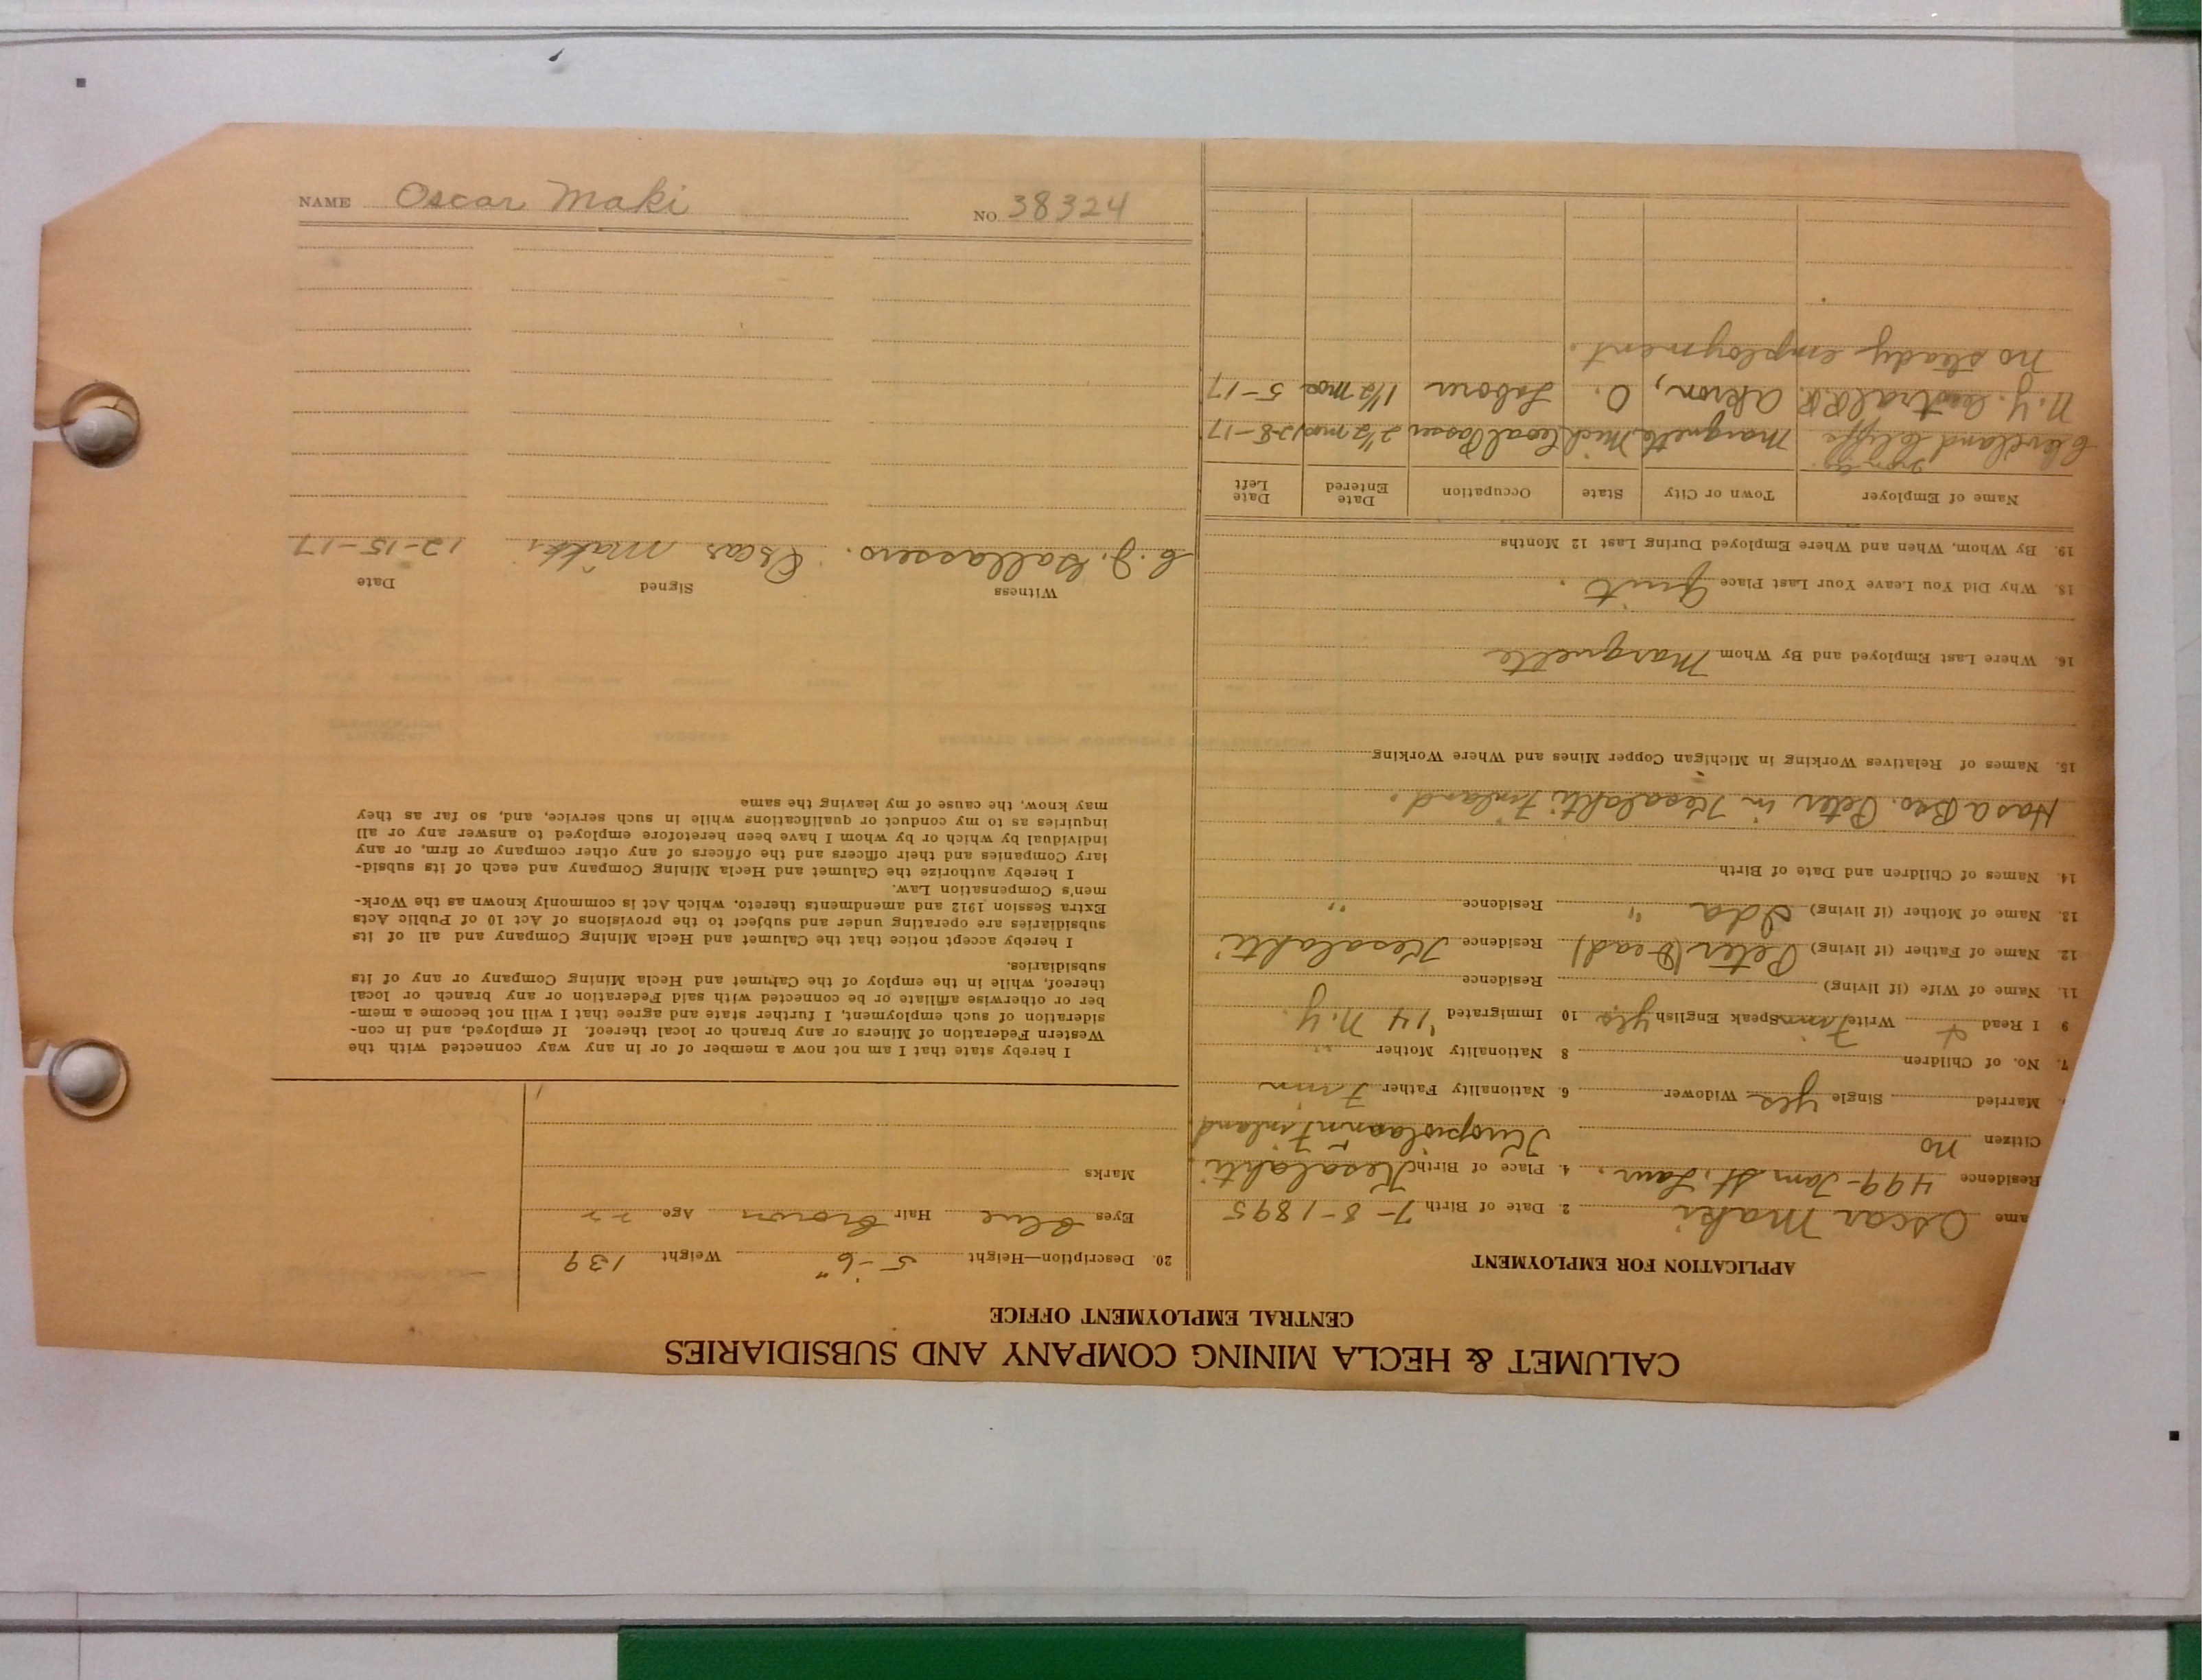 CALUMET & HECLA MINING COMPANY AND SUBSIDIARIES
CENTRAL EMPLOYMENT OFFICE
APPLICATION FOR EMPLOYMENT
ame Oscar Maki 2. Date of Birth 7-8-1895
Residence 499-Tam. St. Laur. 4. Place of Birth Kesalahti
Citizen no Kuopiolaani Finland
Married Single yes Widower 6. Nationality Father Finn
7. No. of Children 8 Nationality Mother "
9 I Read & Write Finnis Speak English yes 10 Immigrated '14 N.Y.
11. Name of Wife (if living) Residence
12. Name of Father (if living) Peter (Dead) Residence Kesalahti
13. Name of Mother (if living) Ida " Residence "
14. Names of Children and Date of Birth
Has a Bro. Peter in Kesalahti Finland.
15. Names of Relatives Working in Michigan Copper Mines and Where Working
16. Where Last Employed and By Whom Marquette
18. Why Did You Leave Your Last Place Quit.
19. By Whom, When and Where Employed During Last 12 Months
Name of Employer Town or City State Occupation Date Entered Date Left
Cleveland Cliffs Iron Co. Marquette Mich Coal Passer 2 1/2 mos 12-8-17
N.Y. Central RR Akron, O. Laborer 1 1/2 mos 5-17
No steady employment.
20. Description—Height 5-6" Weight 139
Eyes Blue Hair Brown Age 22
Marks
I hereby state that I am not now a member of or in any way connected with the
Western Federation of Miners or any branch or local thereof. If employed, and in con-
sideration of such employment, I further state and agree that I will not become a mem-
ber or otherwise affiliate or be connected with said Federation or any branch or local
thereof, while in the employ of the Calumet and Hecla Mining Company or any of its
subsidiaries.
I hereby accept notice that the Calumet and Hecla Mining Company and all of its
subsidiaries are operating under and subject to the provisions of Act 10 of Public Acts
Extra Session 1912 and amendments thereto, which Act is commonly known as the Work-
men's Compensation Law.
I hereby authorize the Calumet and Hecla Mining Company and each of its subsid-
iary Companies and their officers and the officers of any other company or firm, or any
individual by which or by whom I have been heretofore employed to answer any or all
inquiries as to my conduct or qualifications while in such service, and, so far as they
may know, the cause of my leaving the same
Witness Signed Date
C. J. Gallassero. Oscar Mäki 12-15-17
NAME Oscar Maki NO. 38324